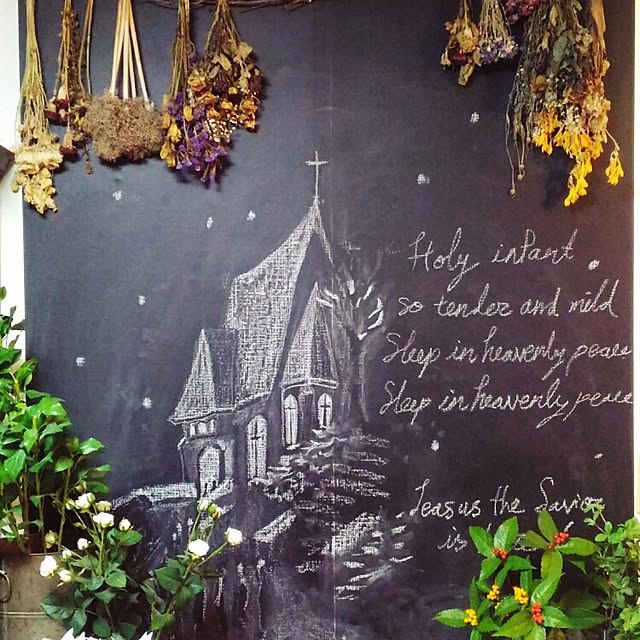 Holy infant
so tender and mild
Sleep in heavenly peace
Sleep in heavenly peace
Jeasus the Savior
is